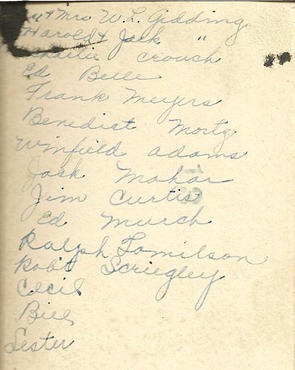 & Mrs W. L. Gidding
Harold & Jack "
Crouch
Ed Belle
Frank Meyers
Benedict Mortz
Winfield Adams
Jack Mahar
Jim Curtis
Ed Murch
Ralph Tomilson
Robt Scriegley
Cecil
Bill
Lester